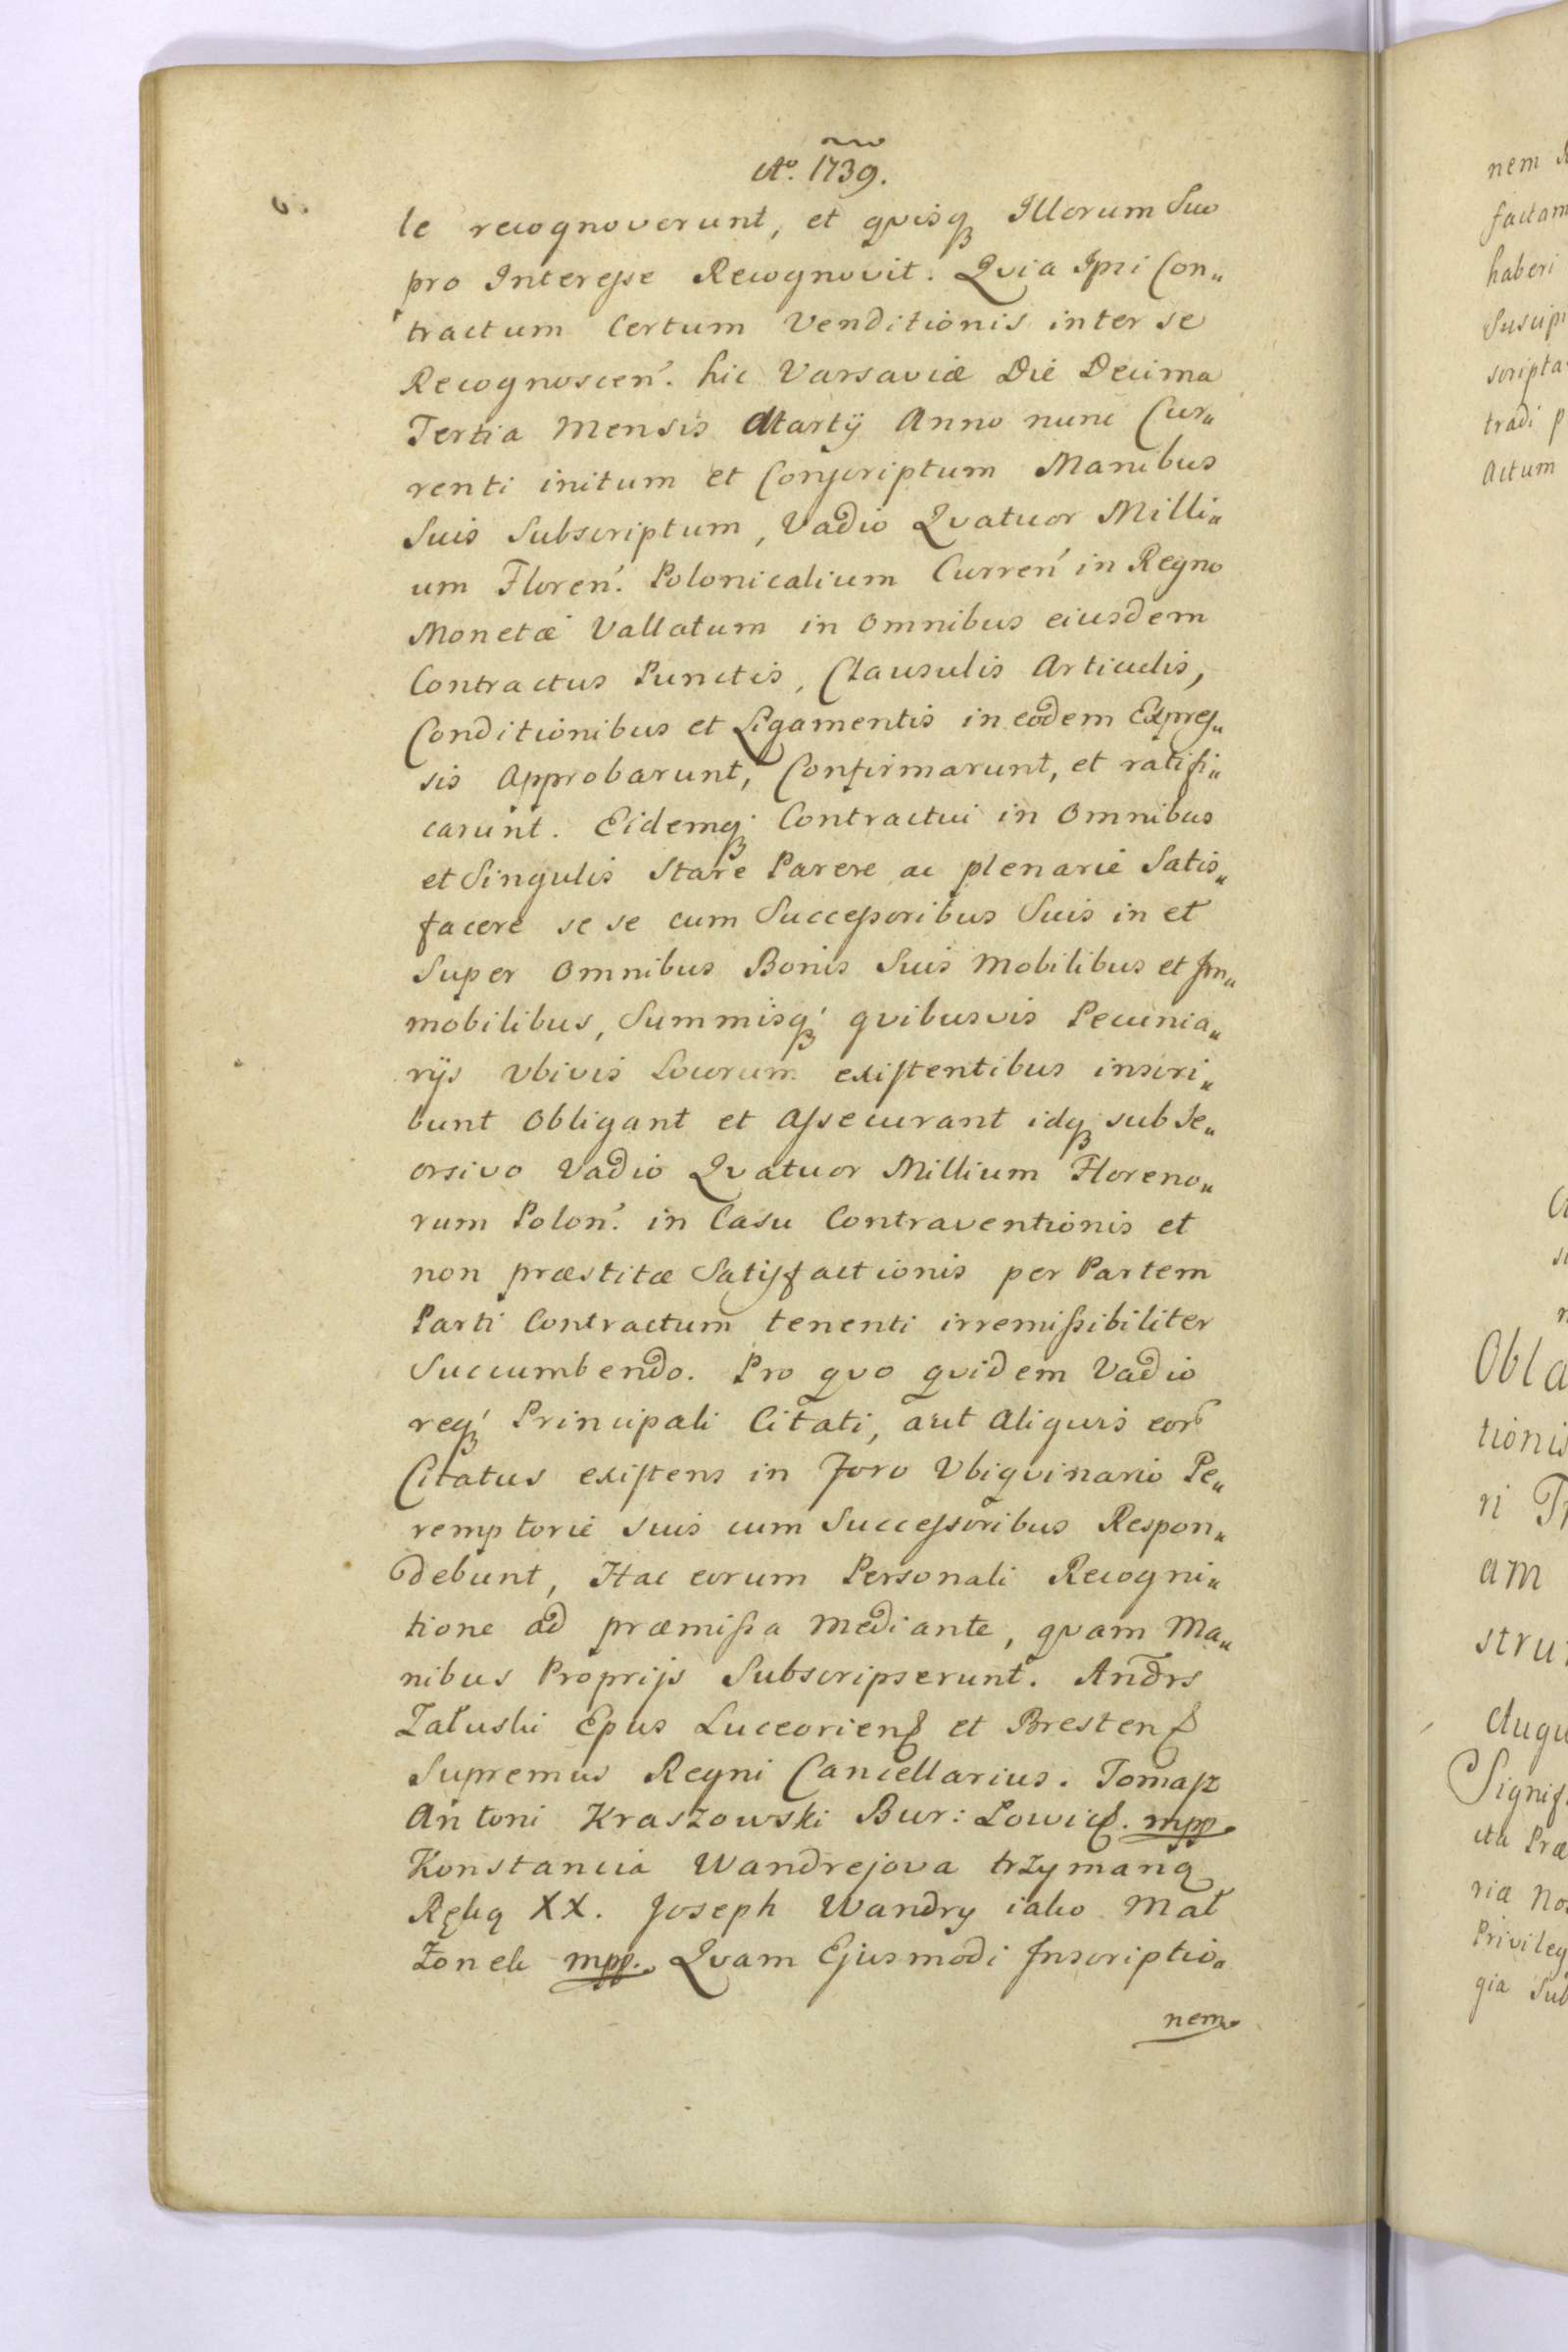 Aº. 1739.
6.
le recognoverunt, et qvisq₃ Illorum Suo
pro Interesse Recognovit. Qvia Ipsi Con„
tractum Certum Venditionis inter se
Recognoscen̄. hic Varsaviæ Die Decima
Tertia Mensis Martÿ Anno nunc Cur„
renti initum et Conscriptum Manibus
Suis Subscriptum, Vadio Qvatuor Milli„
um Floren̄. Polonicalium Curren̄ in Regno
Monetæ Vallatum in Omnibus eiusdem
Contractus Punctis, Clausulis Articulis,
Conditionibus et Ligamentis in eodem Expres„
sis Approbarunt, Confirmarunt, et ratifi„
carunt. Eidemq₃ Contractui in Omnibus
et Singulis Stare Parere ac plenarie Satis„
facere se se cum Successoribus Suis in et
Super Omnibus Bonis Suis Mobilibus et Im„
mobilibus, Summisq₃ qvibusvis Pecunia„
rijs Vbivis Locorum existentibus inscri„
bunt Obligant et Assecurant idq₃ sub Se„
orsivo Vadio Qvatuor Millium Floreno„
rum Polon̄. in Casu Contraventionis et
non præstitæ Satisfactionis per Partem
Parti Contractum tenenti irremissibiliter
Succumbendo. Pro qvo qvidem Vadio
req₃ Principali Citati, aut Aliquis eor
Citatus existens in Foro Vbiqvinario Pe„
remptorie suis cum Successoribus Respon„
debunt, Hac eorum Personali Recogni„
tione ad præmissa Mediante, qvam Ma„
nibus Proprijs Subscripserunt. Andrs
Załuski Epus Luceorien̄ et Bresten̄
Supremus Regni Cancellarius. Tomasz
Antoni Kraszowski Bur: Lowic. mpp.
Konstancia Wandrejova trzymaną
Ręką XX. Joseph Wandry iako Mał
żonek mpp. Qvam Ejusmodi Inscriptio„
nem
nem
factam
haberi
Suscip
scripta
tradi p
Actum
Obla
tionis
ri
am
stru
Augu
Signif
Præ
riæ No
Privileg
gia Sub